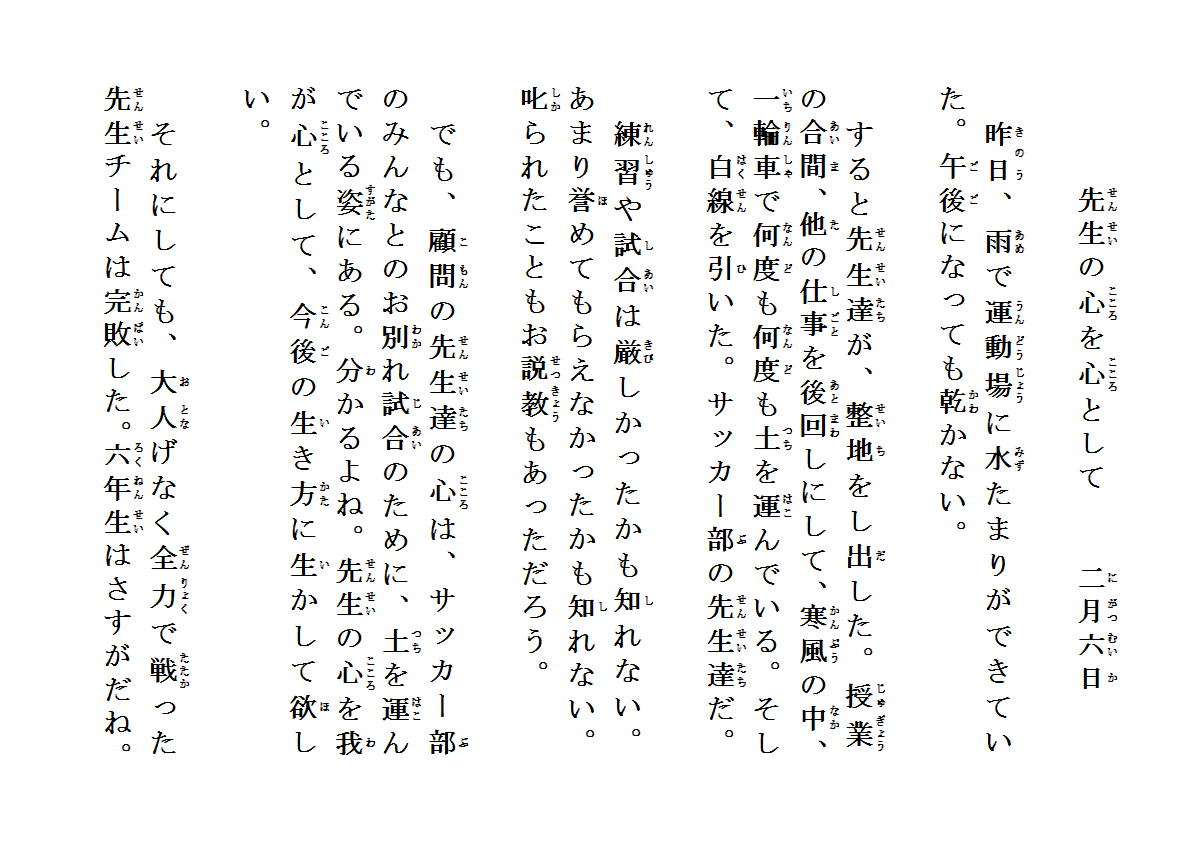 先生の心を心として　　二月六日
昨日、雨で運動場に水たまりができてい
た。午後になっても乾かない。
すると先生達が、整地をし出した。授業
の合間、他の仕事を後回しにして、寒風の中、
一輪車で何度も何度も土を運んでいる。そし
て、白線を引いた。サッカー部の先生達だ。
練習や試合は厳しかったかも知れない。
あまり誉めてもらえなかったかも知れない。
叱られたこともお説教もあっただろう。
でも、顧問の先生達の心は、サッカー部
のみんなとのお別れ試合のために、土を運ん
でいる姿にある。分かるよね。先生の心を我
が心として、今後の生き方に生かして欲し
い。
それにしても、大人げなく全力で戦った
先生チームは完敗した。六年生はさすがだね。